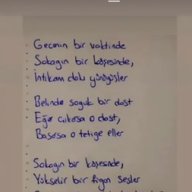 Gecenin bir vaktinde
Sokağın bir köşesinde,
İntikam dolu yürüyüşler
Belinde soğuk bir dost
Eğer çıkarsa o dost,
Basarsa o tetiğe eller
Sokağın bir köşesinde,
Yükselir bir figan sesler